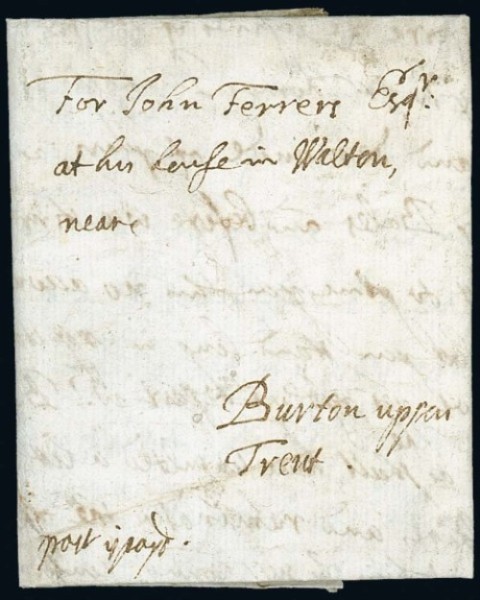 For John Ferrers Esqr.
at his house in Walton,
near
Burton uppon
Trent.
post payd.